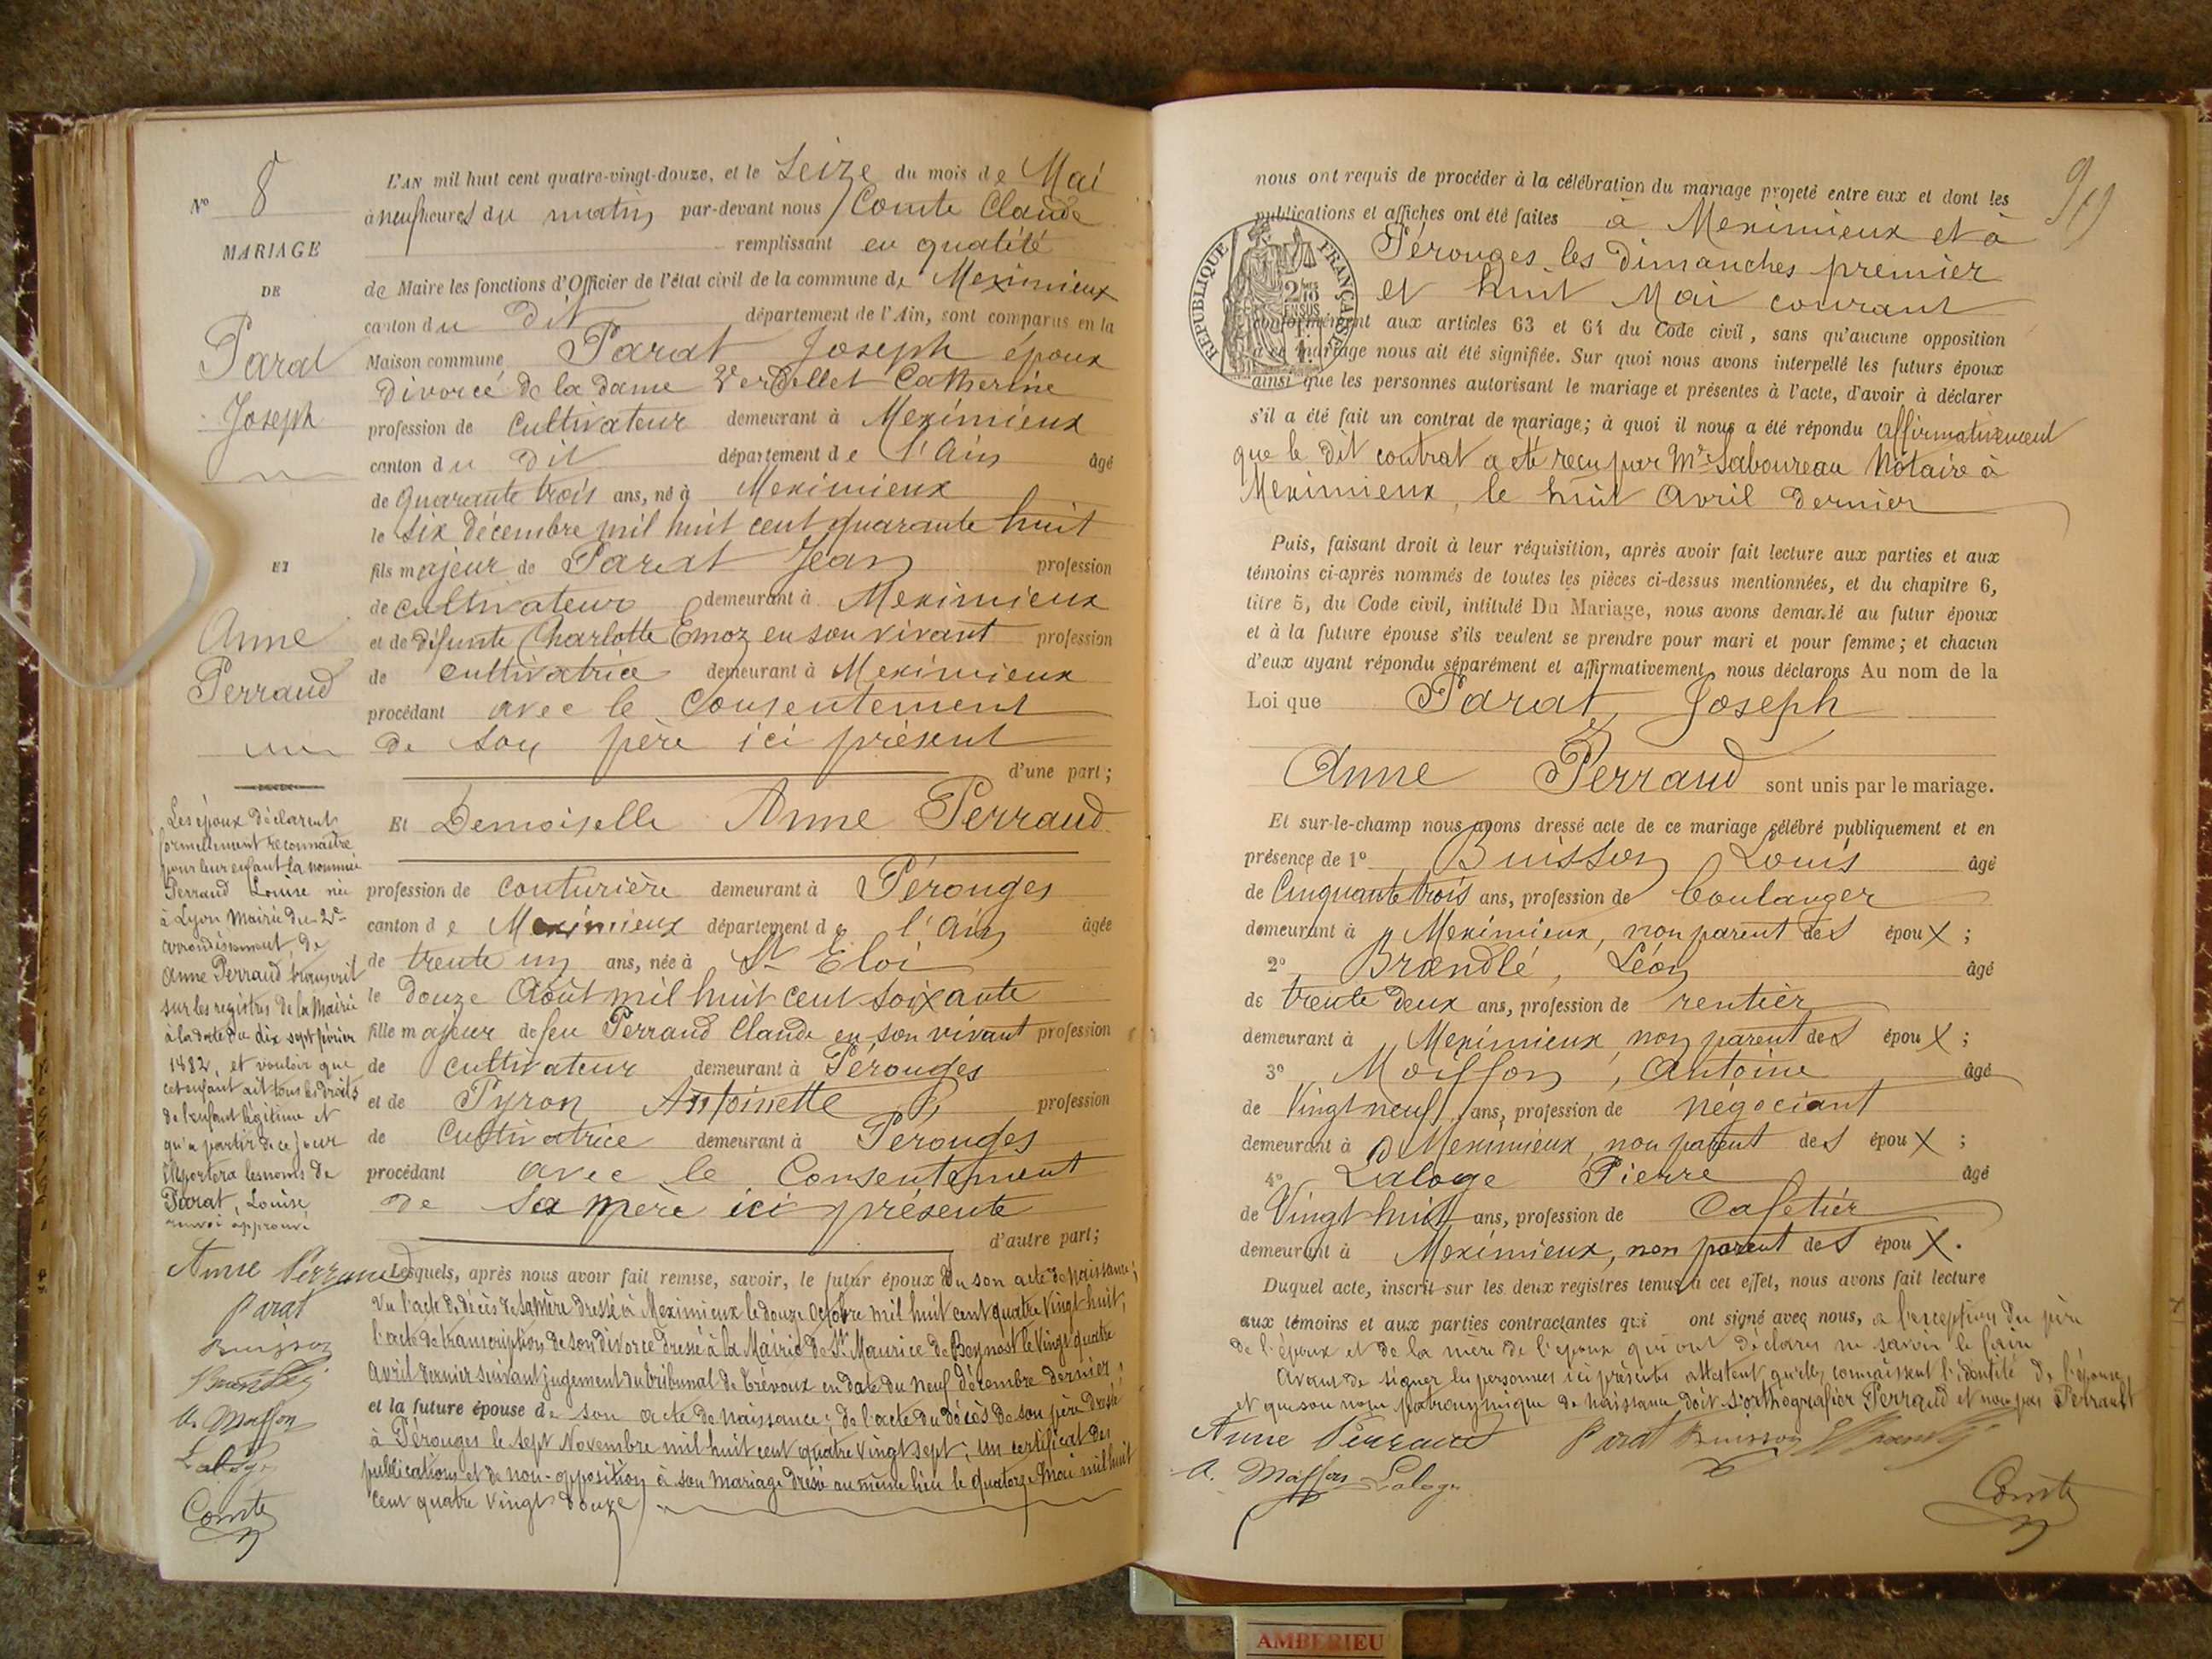 N° 8
MARIAGE
DE
Parat
Joseph
ET
Anne
Perraud
Les époux déclarent
formellement reconnaître
pour leur enfant la nommée
Perraud Louise née
à Lyon Mairie du 2e
arrondissement, de
Anne Perraud, transcrit
sur les registres de la Mairie
à la date du dix sept février
1882, et vouloir que
cet enfant ait tous les droits
de l'enfant légitime et
qu'à partir de ce jour
il portera les noms de
Parat, Louise
renvoi approuvé
Anne Perraud
Parat
Buisson
A. Moiffon
Laloge
Comte
L'AN mil huit cent quatre-vingt-douze, et le Seize du mois de Mai
à neuf heures du matin par-devant nous Comte Claude
remplissant en qualité
de Maire les fonctions d'Officier de l'état civil de la commune de Meximieux
canton du dit département de l'Ain, sont comparus en la
Maison commune Parat Joseph époux
divorcé de la dame Verdellet Catherine
profession de Cultivateur demeurant à Meximieux
canton du dit département de l'Ain âgé
de Quarante trois ans, né à Meximieux
le six décembre mil huit cent quarante huit
fils majeur de Parat Jean profession
de cultivateur demeurant à Meximieux
et de défunte Charlotte Emoz en son vivant profession
de cultivatrice demeurant à Meximieux
procédant avec le Consentement
de son père ici présent
d'une part;
Et Demoiselle Anne Perraud
profession de couturière demeurant à Pérouges
canton de Meximieux département de l'Ain âgée
de trente un ans, née à St Eloi
le douze Août mil huit cent soixante
fille majeur de feu Perraud Claude en son vivant profession
de cultivateur demeurant à Pérouges
et de Pyron Antoinette profession
de Cultivatrice demeurant à Pérouges
procédant avec le Consentement
de sa mère ici présente
d'autre part;
Lesquels, après nous avoir fait remise, savoir, le futur époux du son acte de naissance;
Vu l'acte de décès de sa mère dressé à Meximieux le douze Octobre mil huit cent quatre vingt huit,
l'acte de transcription de son divorce dressé à la Mairie de St Maurice de Beynost le Vingt quatre
Avril dernier suivant jugement du tribunal de Trévoux en date du neuf décembre dernier;
et la future épouse de son acte de naissance; de l'acte du décès de son père dressé
à Pérouges le sept Novembre mil huit cent quatre vingt sept; un certificat des
publications et de non-opposition à son mariage dressé au même lieu le quatorze Mai mil huit
cent quatre vingt douze
nous ont requis de procéder à la célébration du mariage projeté entre eux et dont les
publications et affiches ont été faites à Meximieux et à
Pérouges les dimanches premier
et huit Mai courant
REPUBLIQUE FRANÇAISE
conformément aux articles 63 et 64 du Code civil, sans qu'aucune opposition
à ce mariage nous ait été signifiée. Sur quoi nous avons interpellé les futurs époux
ainsi que les personnes autorisant le mariage et présentes à l'acte, d'avoir à déclarer
s'il a été fait un contrat de mariage; à quoi il nous a été répondu affirmativement
que le dit contrat a été reçu par Me Saboureau Notaire à
Meximieux, le huit Avril dernier
Puis, faisant droit à leur réquisition, après avoir fait lecture aux parties et aux
témoins ci-après nommés de toutes les pièces ci-dessus mentionnées, et du chapitre 6,
titre 5, du Code civil, intitulé Du Mariage, nous avons demandé au futur époux
et à la future épouse s'ils veulent se prendre pour mari et pour femme; et chacun
d'eux ayant répondu séparément et affirmativement, nous déclarons Au nom de la
Loi que Parat Joseph
&
Anne Perraud sont unis par le mariage.
Et sur-le-champ nous avons dressé acte de ce mariage célébré publiquement et en
présence de 1° Buisson Louis âgé
de Cinquante trois ans, profession de boulanger
demeurant à Meximieux, non parent des époux;
2° Brændlé, Léon âgé
de trente deux ans, profession de rentier
demeurant à Meximieux, non parent des époux;
3° Moiffon, Antoine âgé
de Vingt neuf ans, profession de négociant
demeurant à Meximieux, non parent des époux;
4° Laloge Pierre âgé
de Vingt huit ans, profession de Cafetier
demeurant à Meximieux, non parent des époux.
Duquel acte, inscrit sur les deux registres tenus à cet effet, nous avons fait lecture
aux témoins et aux parties contractantes qui ont signé avec nous, à l'exception du père
de l'époux et de la mère de l'épouse qui ont déclaré ne savoir le faire
Avant de signer les personnes ici présentes attestent qu'elles connaissent l'identité de l'épouse
et que son nom patronymique de naissance doit s'orthographier Perraud et non pas Perrault
Anne Perraud Parat Buisson
A. Moiffon Laloge
Comte
AMBERIEU